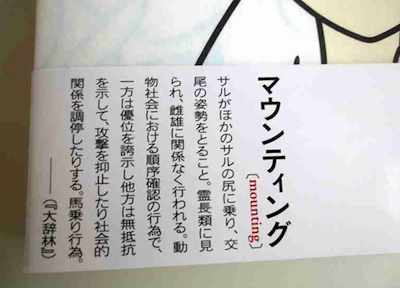 マウンティング
〔mounting〕
サルがほかのサルの尻に乗り、交
尾の姿勢をとること。霊長類に見
られ、雌雄に関係なく行われる。動
物社会における順序確認の行為で、
一方は優位を誇示し他方は無抵抗
を示して、攻撃を抑止したり社会的
関係を調停したりする。馬乗り行為。
──(『大辞林』)